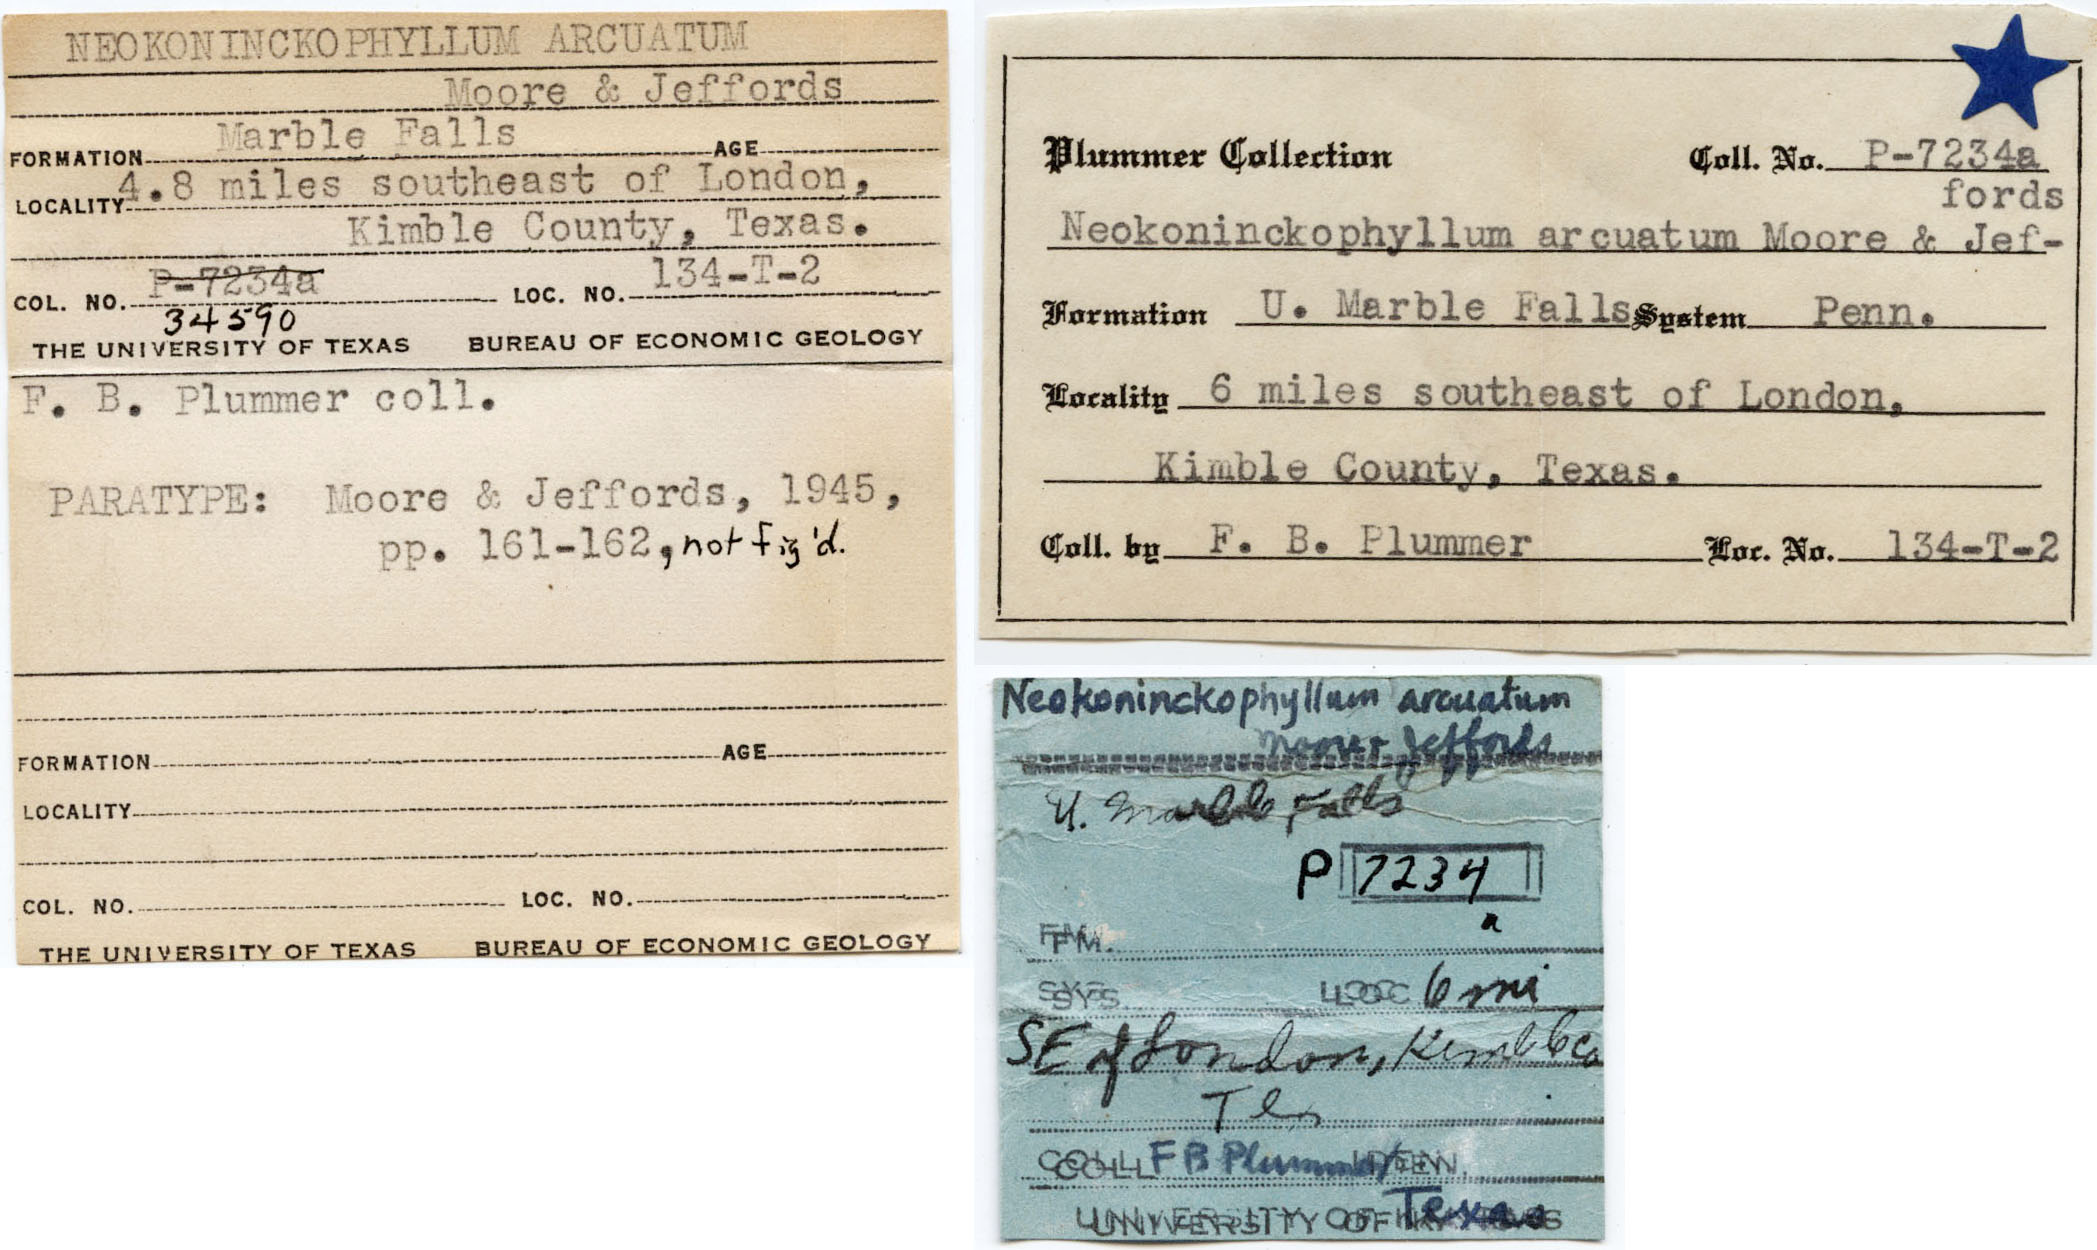 NEOKONINCKOPHYLLUM ARCUATUM
Moore & Jeffords
FORMATION Marble Falls AGE
LOCALITY 4.8 miles southeast of London,
Kimble County, Texas.
COL. NO. P-7234a LOC. NO. 134-T-2
34590
THE UNIVERSITY OF TEXAS BUREAU OF ECONOMIC GEOLOGY
F. B. Plummer coll.
PARATYPE: Moore & Jeffords, 1945,
pp. 161-162, not fig'd.
FORMATION AGE
LOCALITY
COL. NO. LOC. NO.
THE UNIVERSITY OF TEXAS BUREAU OF ECONOMIC GEOLOGY
Plummer Collection Coll. No. P-7234a
fords
Neokoninckophyllum arcuatum Moore & Jef-
Formation U. Marble Falls System Penn.
Locality 6 miles southeast of London,
Kimble County, Texas.
Coll. by F. B. Plummer Loc. No. 134-T-2
Neokoninckophyllum arcuatum
Moore + Jeffords
U. Marble Falls
P 7234
a
FM.
SYS. LOC 6 mi
SE of London, Kimble Co
Tex
COLL F B Plummer IDEN.
UNIVERSITY OF Texas